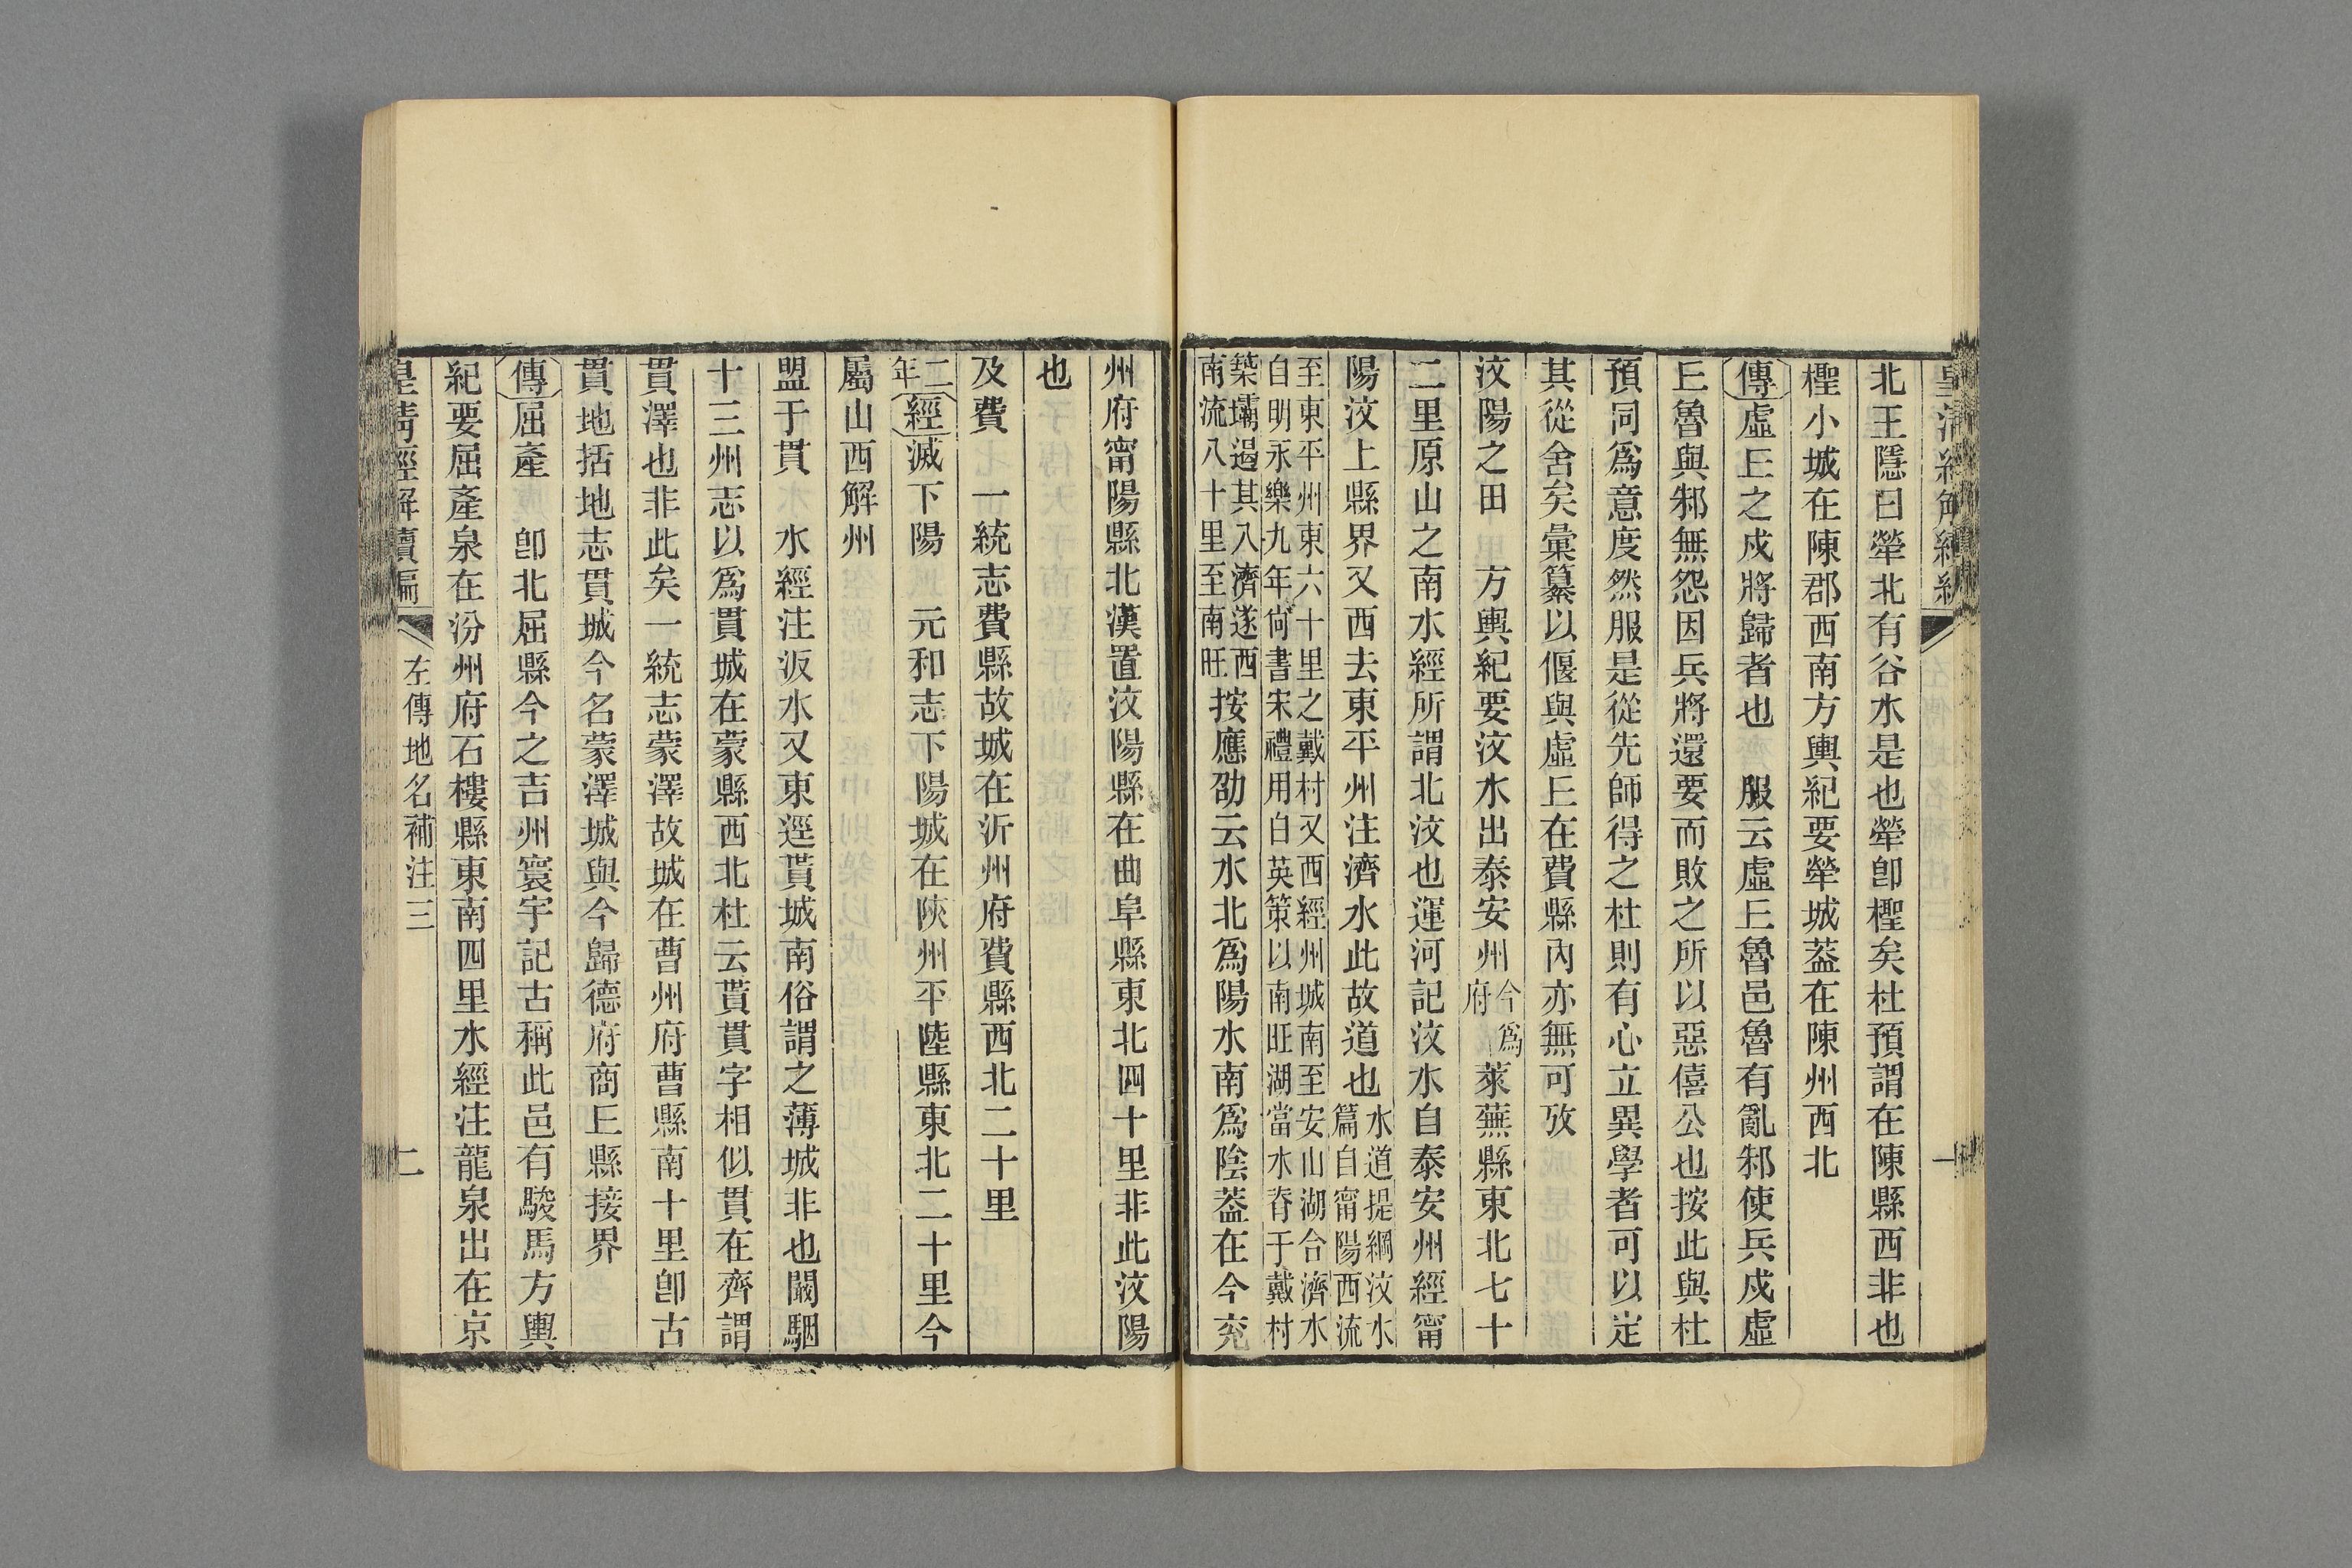 北王隱曰犖北有谷水是也犖卽檉矣杜預謂在陳縣西非也
檉小城在陳郡西南方輿紀要犖城葢在陳州西北
傳虛𠀉之戍將歸者也　服云虛𠀉魯邑魯有亂邾使兵戍虛
𠀉魯與邾無怨因兵將還要而敗之所以惡僖公也按此與杜
預同爲意度然服是從先師得之杜則有心立異學者可以定
其從舍矣彙纂以偃與虛𠀉在費縣內亦無可攷
汶陽之田　方輿紀要汶水出泰安州今爲府萊蕪縣東北七十
二里原山之南水經所謂北汶也運河記汶水自泰安州經甯
陽汶上縣界又西去東平州注濟水此故道也水道提綱汶水篇自甯陽西流
至東平州東六十里之戴村又西經州城南至安山湖合濟水自明永樂九年尙書宋禮用白英策以南旺湖當水脊于戴村
築壩遏其入濟遂西南流八十里至南旺按應劭云水北爲陽水南爲陰葢在今兖
州府甯陽縣北漢置汶陽縣在曲阜縣東北四十里非此汶陽
也
及費　一統志費縣故城在沂州府費縣西北二十里
二年經滅下陽　元和志下陽城在陝州平陸縣東北二十里今
屬山西解州
盟于貫　水經注汳水又東逕貰城南俗謂之薄城非也闞駰
十三州志以爲貫城在蒙縣西北杜云貰貫字相似貫在齊謂
貫澤也非此矣一統志蒙澤故城在曹州府曹縣南十里卽古
貫地括地志貫城今名蒙澤城與今歸德府商𠀉縣接界
傳屈產　卽北屈縣今之吉州寰宇記古稱此邑有駿馬方輿
紀要屈產泉在汾州府石樓縣東南四里水經注龍泉出在京
皇清經解續編　左傳地名補注三　二